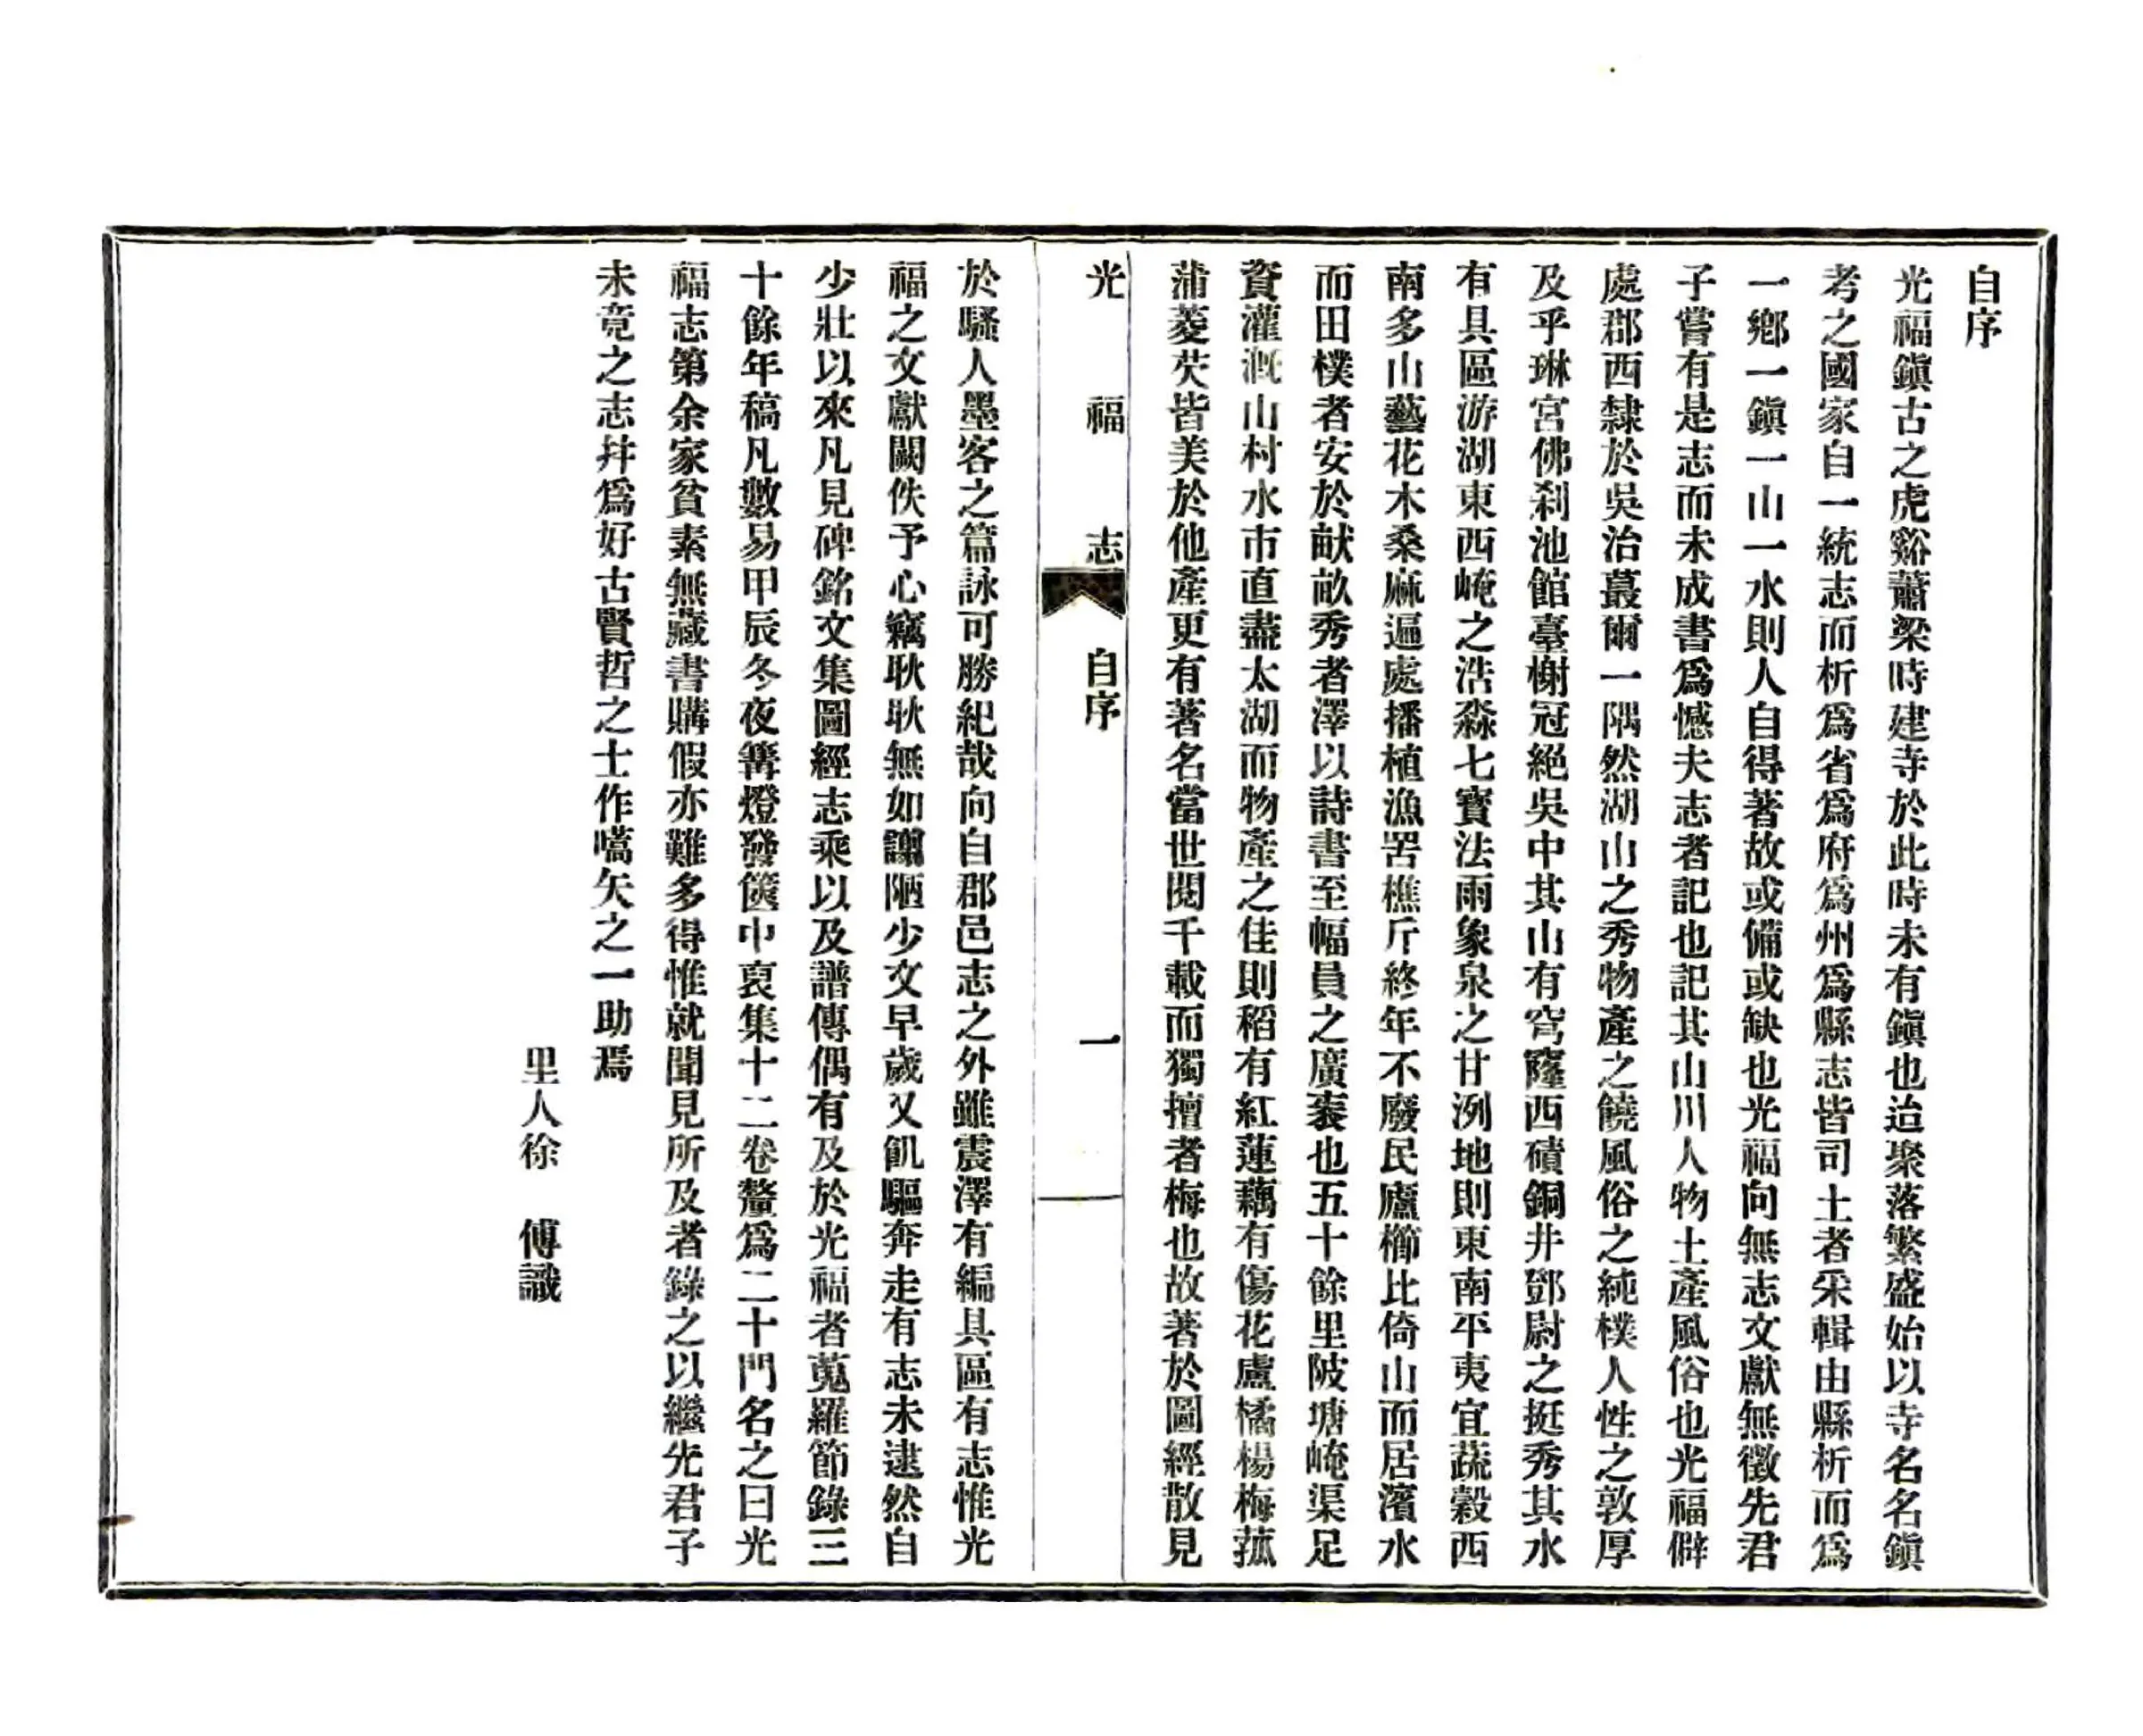 自序
光福鎭古之虎谿蕭梁時建寺於此時未有鎭也迨聚落繁盛始以寺名名鎭
考之國家自一統志而析爲省爲府爲州爲縣志皆司土者采輯由縣析而爲
一鄕一鎭一山一水則人自得著故或備或缺也光福向無志文獻無徵先君
子嘗有是志而未成書爲憾夫志者記也記其山川人物土產風俗也光福僻
處郡西隸於吳治蕞爾一隅然湖山之秀物產之饒風俗之純樸人性之敦厚
及乎琳宮佛刹池館臺榭冠絕吳中其山有穹窿西磧銅井鄧尉之挺秀其水
有具區游湖東西崦之浩淼七寶法雨象泉之甘洌地則東南平夷宜蔬穀西
南多山藝花木桑麻遍處播植漁罟樵斤終年不廢民廬櫛比倚山而居濱水
而田樸者安於畎畝秀者澤以詩書至幅員之廣袤也五十餘里陂塘崦渠足
資灌漑山村水市直盡太湖而物產之佳則稻有紅蓮藕有傷花盧橘楊梅菰
蒲菱芡皆美於他產更有著名當世閱千載而獨擅者梅也故著於圖經散見
光福志 自序 一
於騷人墨客之篇詠可勝紀哉向自郡邑志之外雖震澤有編具區有志惟光
福之文獻闕佚予心竊耿耿無如謭陋少文早歲又飢驅奔走有志未逮然自
少壯以來凡見碑銘文集圖經志乘以及譜傳偶有及於光福者蒐羅節錄三
十餘年稿凡數易甲辰冬夜篝燈發篋中裒集十二卷釐爲二十門名之曰光
福志第余家貧素無藏書購假亦難多得惟就聞見所及者錄之以繼先君子
未竟之志幷爲好古賢哲之士作嚆矢之一助焉
里人徐 傅識